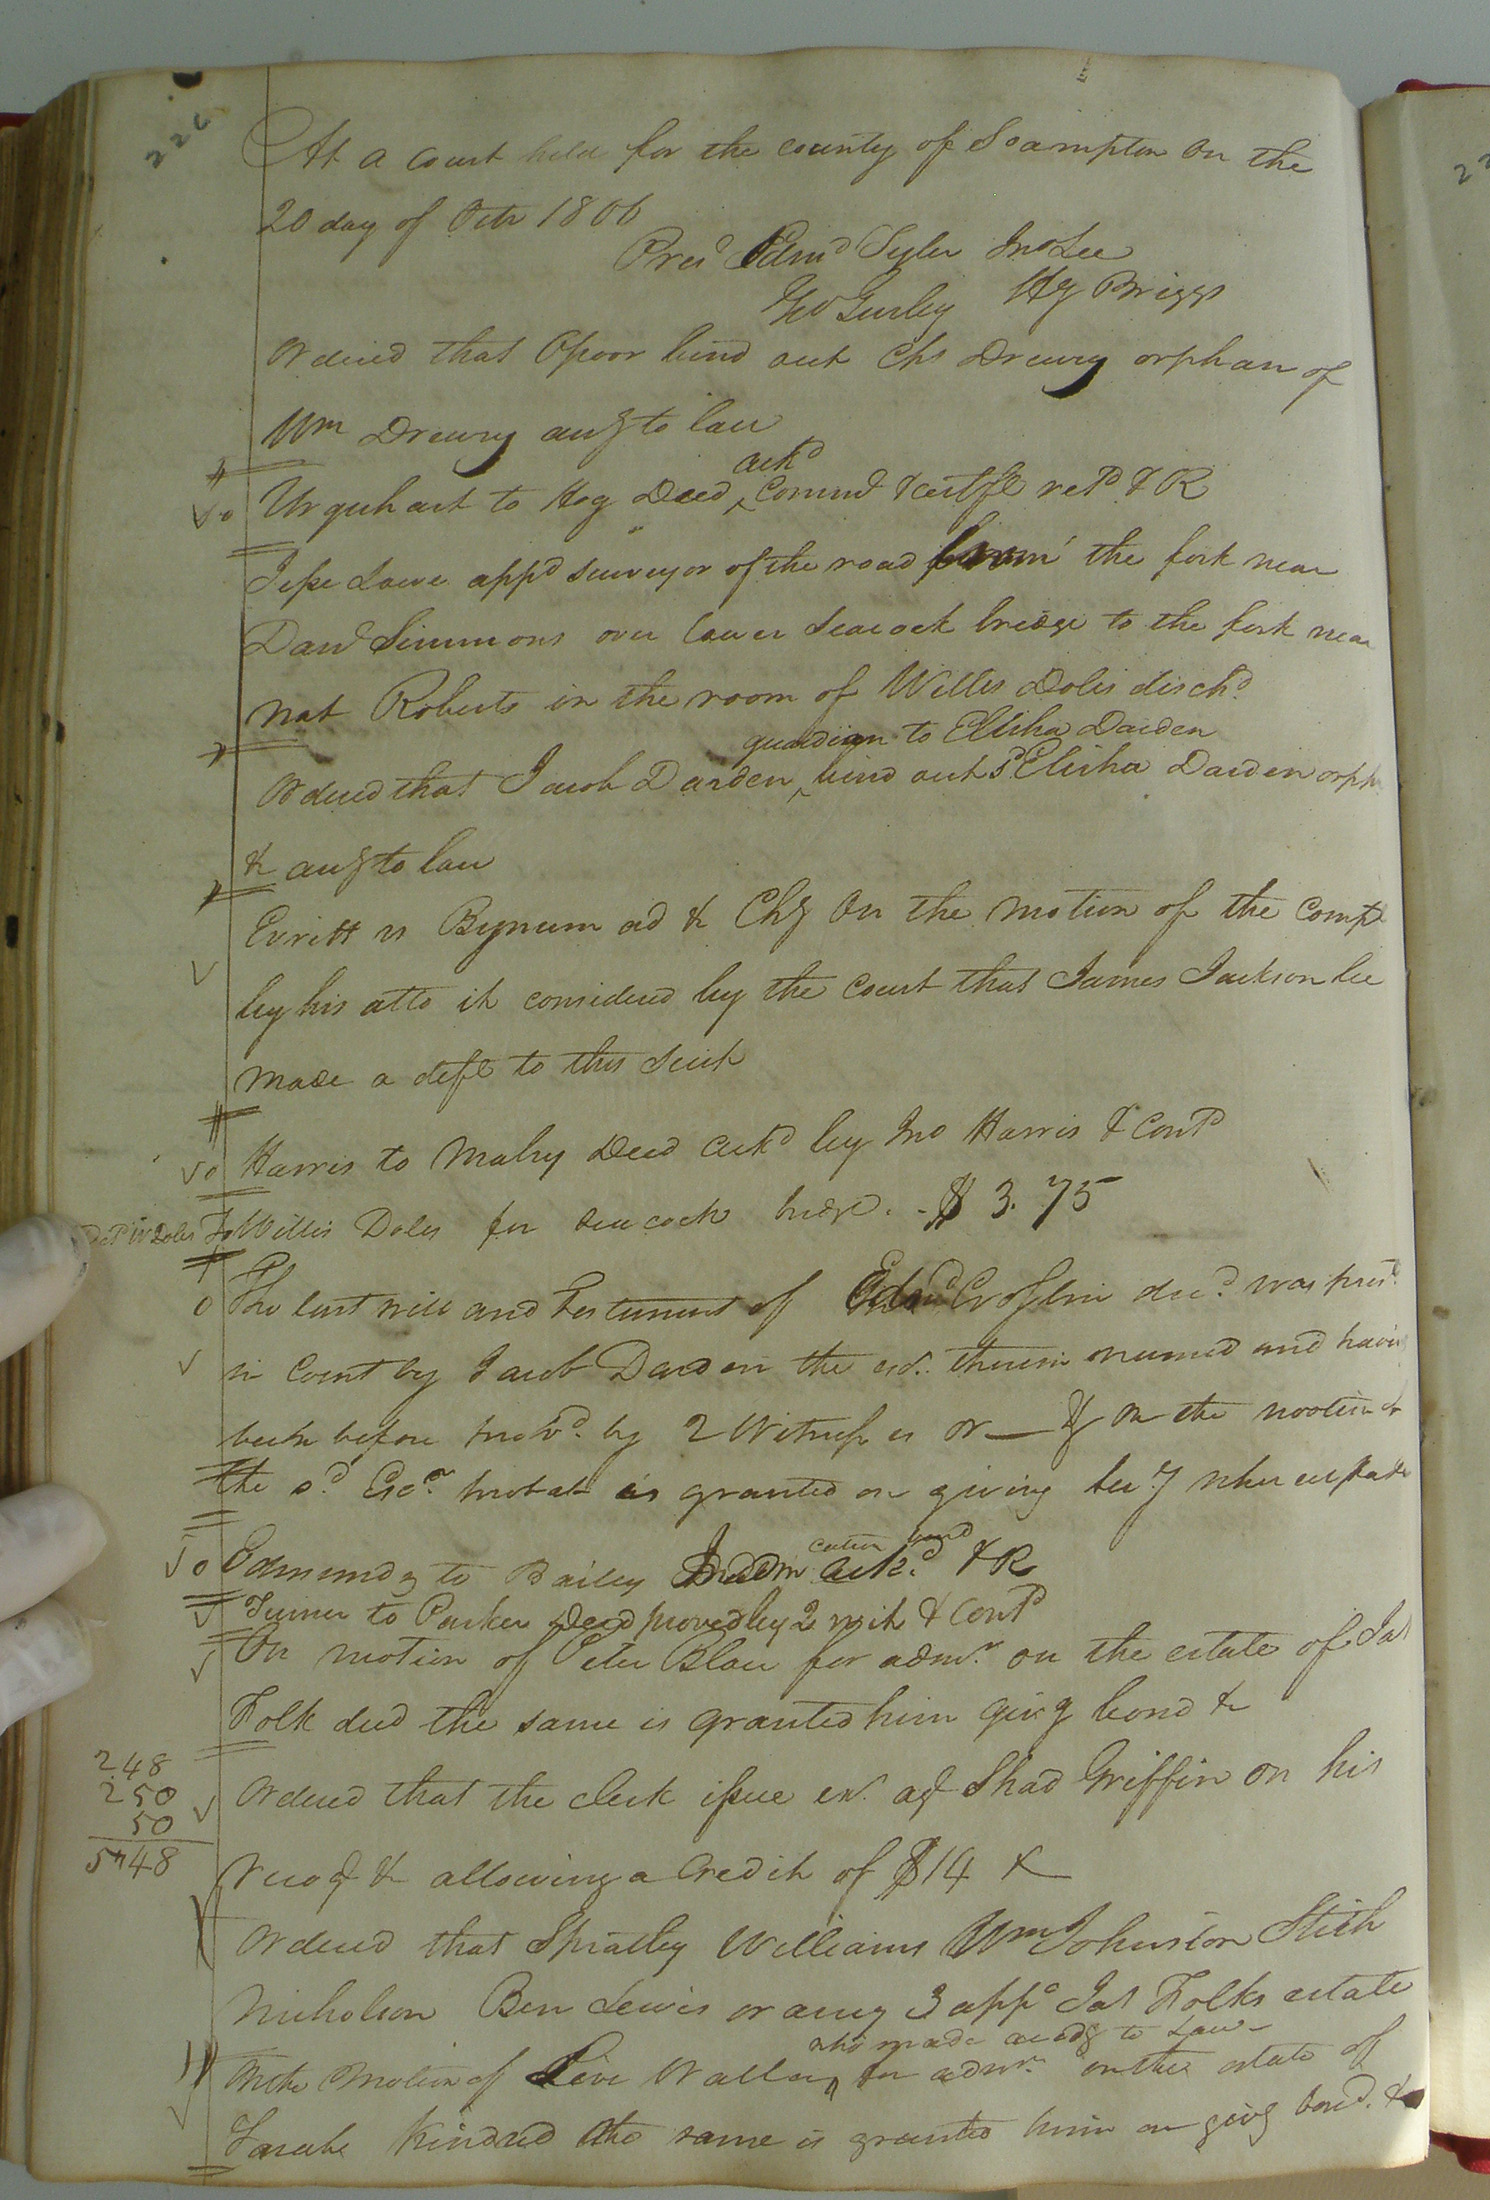 226
At a Court held for the county of Soampton on the
20 day of Octr 1806
Presd Edmd Tyler Jno Lee
Geo Gurley Hy Briggs
Ordered that Opoor bind out Chs Drewry orphan of
Wm Drewry accg to law
ackd
Urquhart to Hog Deed Commd & certfe retd & R
Jesse Lowe appd surveyor of the road from the fork near
Danl Simmons over lower Seacock bridge to the fork near
Nat Roberts in the room of Willis Doles dischd
guardian to Elisha Darden
Ordered that Jacob Darden bind out sd Elisha Darden orph
& accg to law
Evritt vs Bynum ad & Chy On the motion of the Compt
by his atto it considered by the Court that James Jackson be
made a deft to this Suit
Harris to Malry Deed ackd by Jno Harris & Contd
Willis Doles for Seacock bridge. $ 3.75
The last will and Testament of Edmd decd was presd
in Court by Jacob Darden the exr. therein named and having
been before provd. by 2 Witnesses Or & On the motion of
the sd. Exr. probate is granted on giving secy when
Edmunds to Bailey ackd. & R
Turner to Parker Deed proved by 2 wit & Contd
On motion of Peter Blow for admr. on the estate of Jas
Folk decd the same is granted him givg bond &
248
250
50
548
Ordered that the clerk issue ex. agt Shad Griffin on his
recog & allowing a Credit of $14 &
Ordered that Spratley Williams Wm Johnston Stith
Nicholson Ben Lewis or any 3 appr Jas Folks estate
who made accdg to Law
On the Motion of Levi Waller for admr. on the estate of
Kindred the same is granted him on givg bond. &